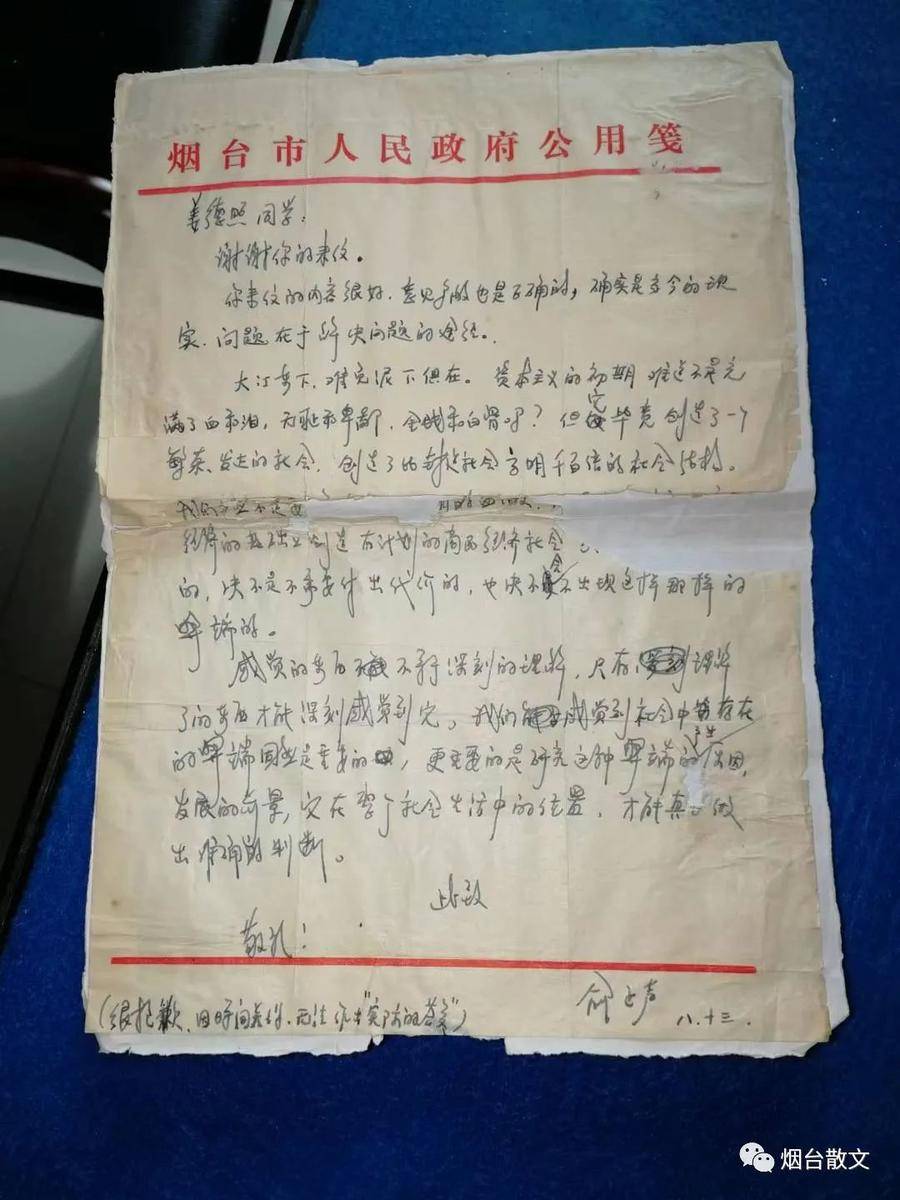 烟台市人民政府公用笺
姜德照同学：
谢谢你的来信。
你来信的内容很好，意见多数也是正确的，确实是当今的现
实，问题在于解决问题的途径。
大江东下，难免泥下俱在。资本主义的初期难道不是充
满了血和泪，无耻和卑鄙，金钱和白骨吗？但它毕竟创造了一个
繁荣、发达的社会，创造了比封建社会高明千百倍的社会结构。
我们
经济的基础上创造有计划的商品经济社会
的，决不是不需要付出代价的，也决不会不出现这样那样的
弊端的。
感觉的东西不等于深刻的理解，只有理解
了的东西才能深刻感觉到它，我们感觉到社会中存在
的弊端固然是重要的，更重要的是研究这种弊端的产生原因，
发展的前景，它在整个社会生活中的位置，才能真正做
出准确的判断。
此致
敬礼！
俞正声
八.十三.
（很抱歉，因时间关系，无法作出“实际的答复”）
烟台散文